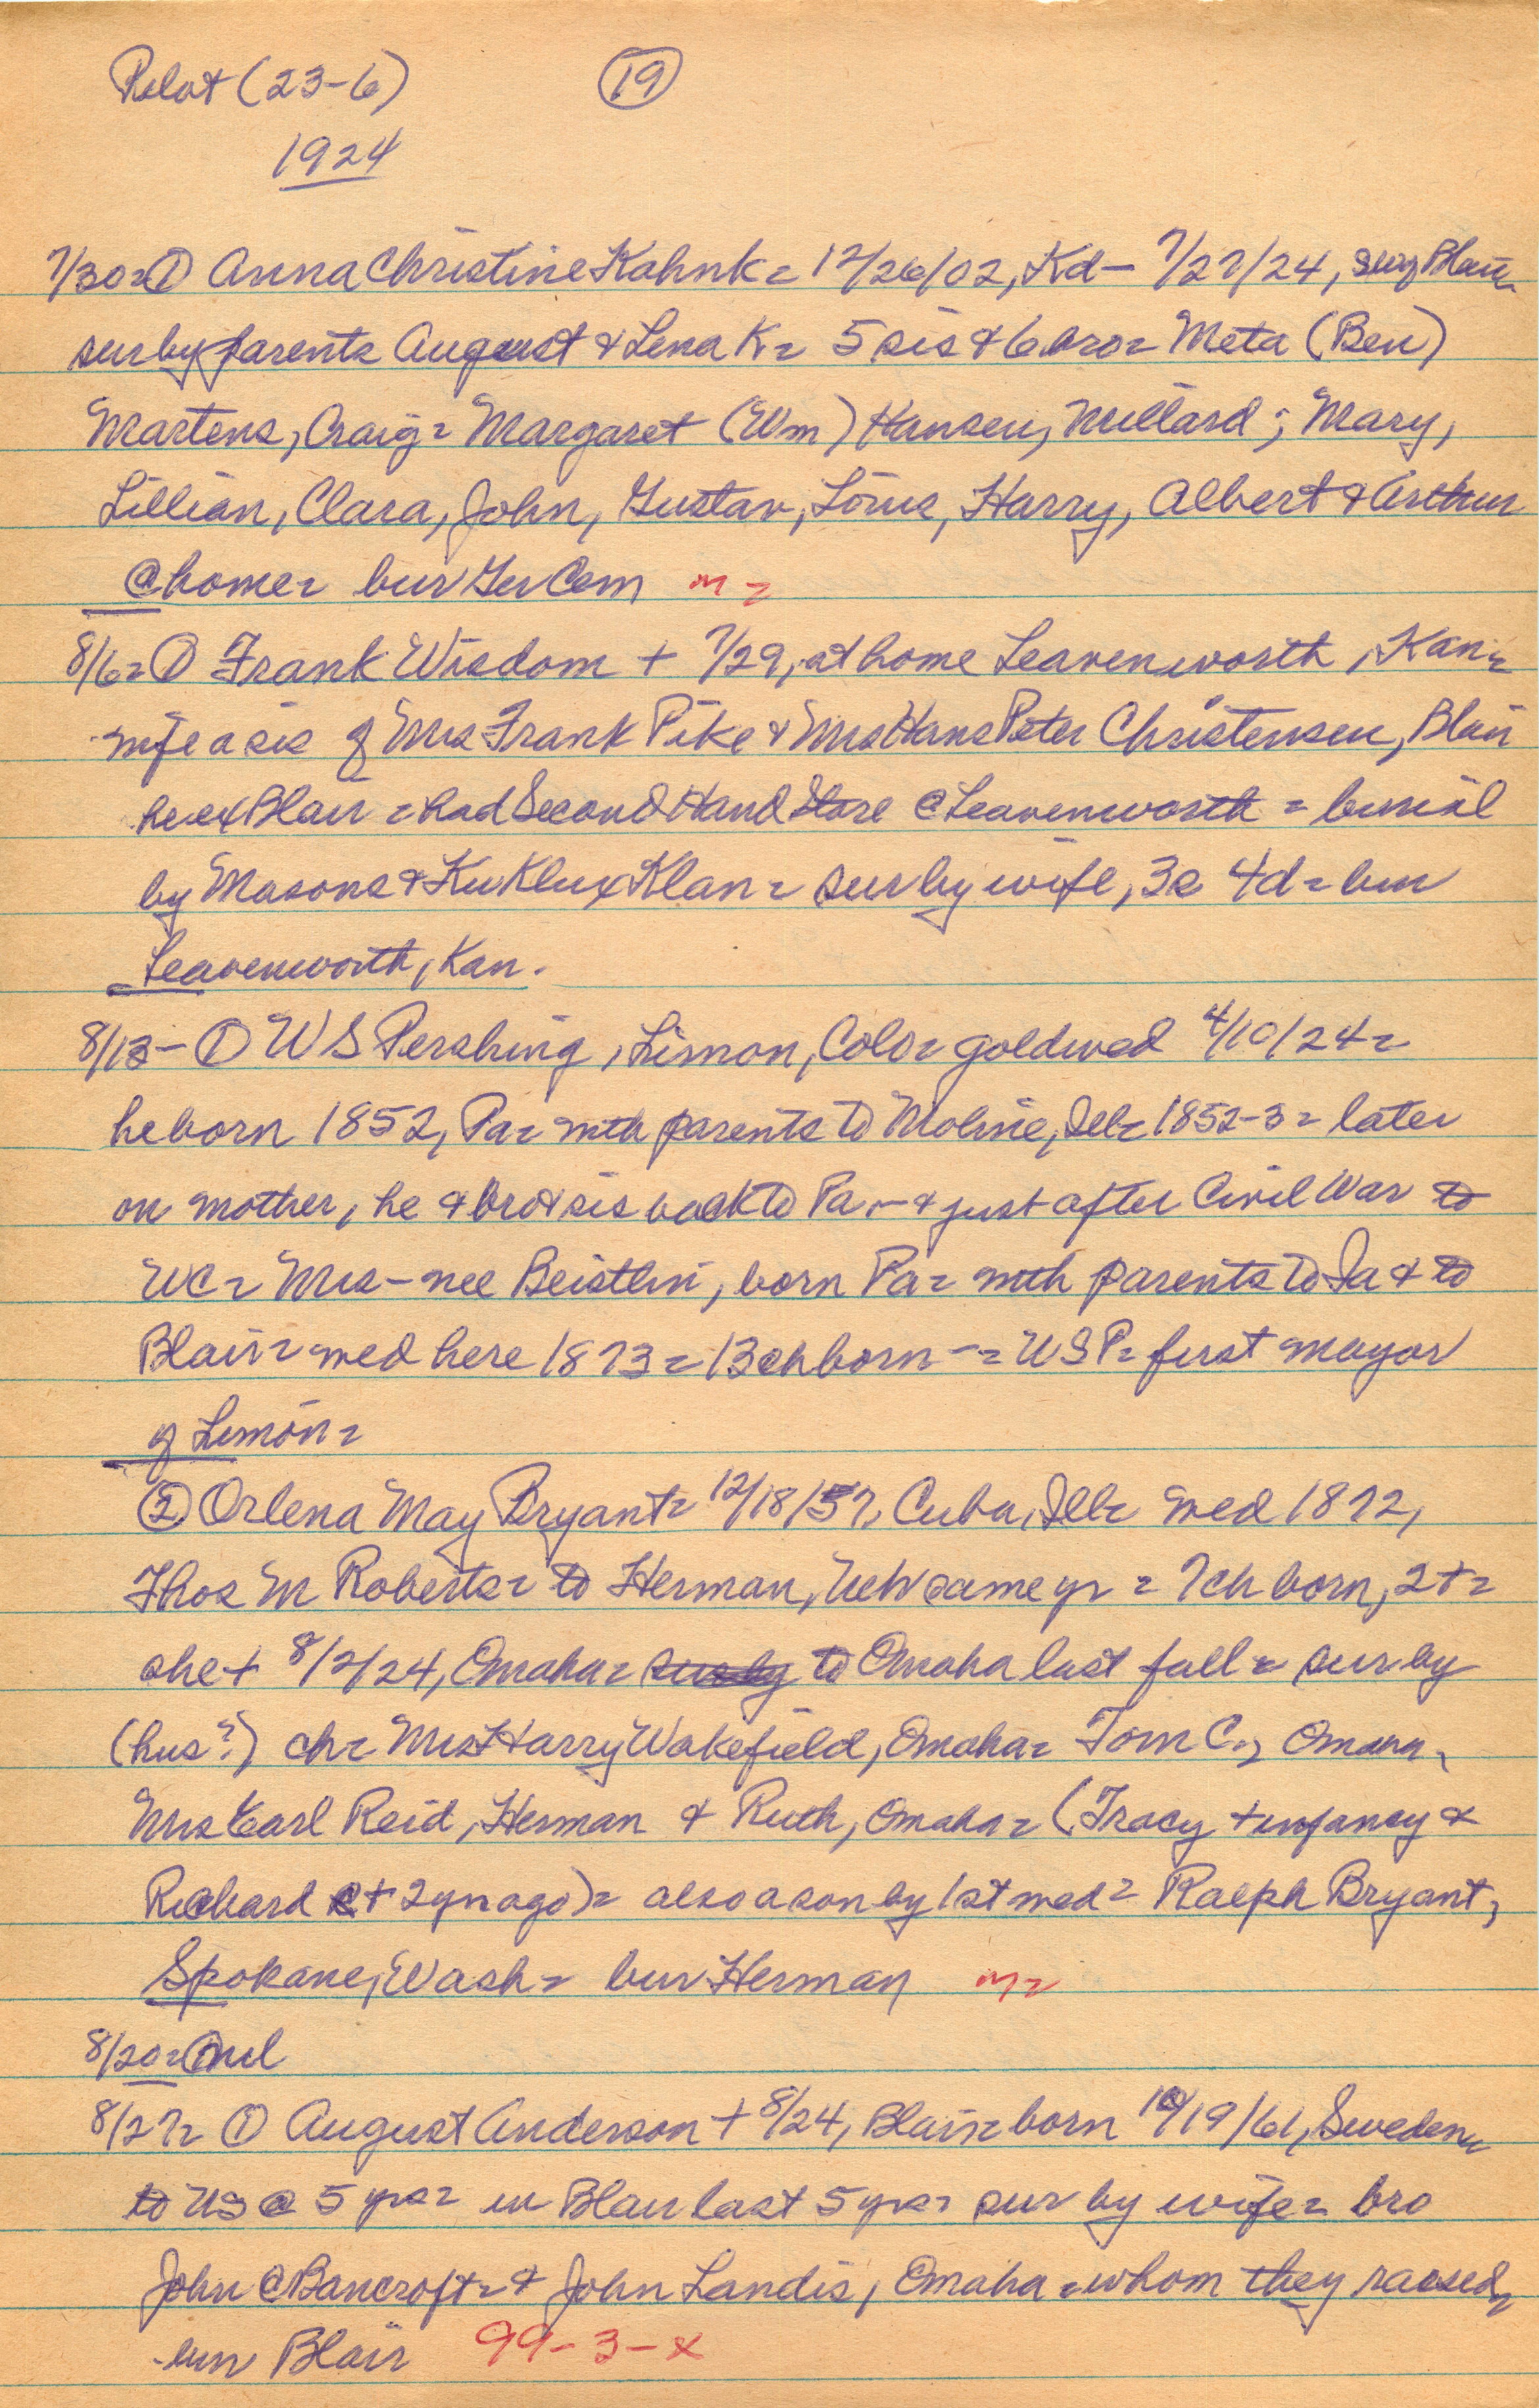 Pilot (23-6) (19)
1924
7/30 = ① Anna Christine Kahnk = 12/26/02, Kd - 7/27/24, Blair
sur by parents August & Lena K = 5 sis & 6 bro = Meta (Ben)
Martens, Craig = Margaret (Wm) Hansen, Millard; Mary,
Lillian, Clara, John, Gustav, Louis, Harry, Albert & Arthur
@ home = bur Ger Cem m =
8/6 = ① Frank Wisdom + 7/29, at home Leavenworth, Kan =
wife a sis of Mrs Frank Pike & Mrs Hans Peter Christensen, Blair
he ex Blair = had Second Hand Store @ Leavenworth = burial
by Masons & Ku Klux Klan = sur by wife, 3s 4d = bur
Leavenworth, Kan.
8/13 - ① W S Pershing, Limon, Colo = gold wed 4/10/24 =
he born 1852, Pa = with parents to Moline, Ill = 1852-3 = later
on mother, he & bro & sis back to Pa - & just after Civil War to
WC = Mrs - nee Beistlin, born Pa = with parents to Ia & to
Blair = wed here 1873 = 13 ch born - = WSP = first mayor
of Limon =
② Orlena May Bryant = 12/18/57, Cuba, Ill = wed 1872,
Thos M Roberts = to Herman, Neb same yr = 7 ch born, 2 + =
she + 8/2/24, Omaha = to Omaha last fall = sur by
(hus?) ch = Mrs Harry Wakefield, Omaha = Tom C., Omaha,
Mrs Earl Reid, Herman & Ruth, Omaha = (Tracy + infancy &
Richard + 2 yr ago) = also a son by 1st wed = Ralph Bryant,
Spokane, Wash = bur Herman m =
8/20 = ① nil
8/27 = ① August Anderson + 8/24, Blair = born 10/19/61, Sweden =
to US @ 5 yrs = in Blair last 5 yrs = sur by wife = bro
John @ Bancroft = & John Landis, Omaha = whom they raised,
bur Blair 99-3-x